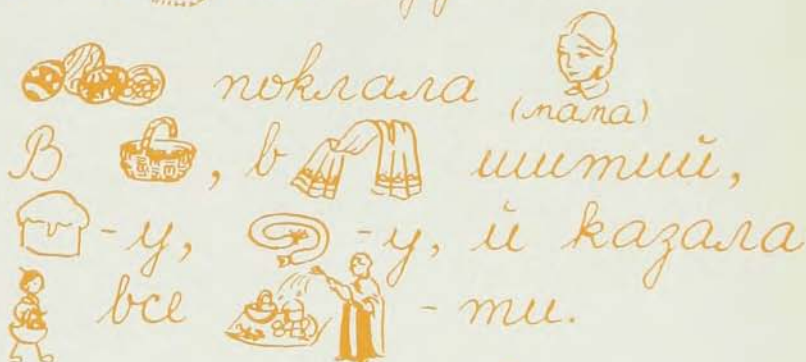 поклала
(мама)
В , в шитий,
-у, -у, й казала
все - ти.